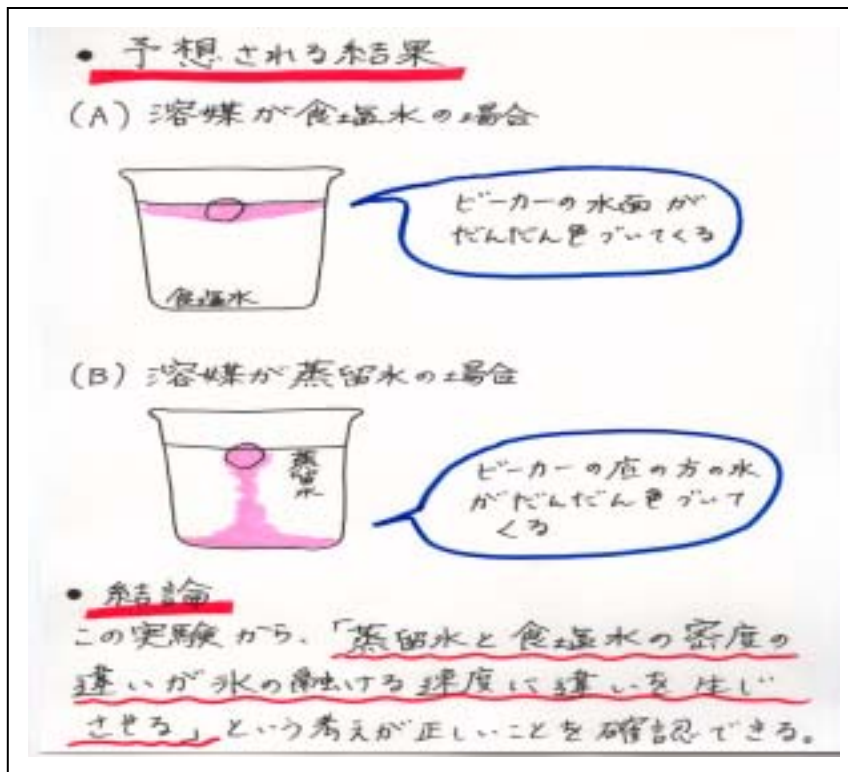 • 予想される結果
(A) 溶媒が食塩水の場合
ビーカーの水面が
だんだん色づいてくる
食塩水
(B) 溶媒が蒸留水の場合
蒸留水
ビーカーの底の方の水
がだんだん色づいて
くる
• 結論
この実験から、「蒸留水と食塩水の密度の
違いが氷の融ける速度に違いを生じ
させる」という考えが正しいことを確認できる。